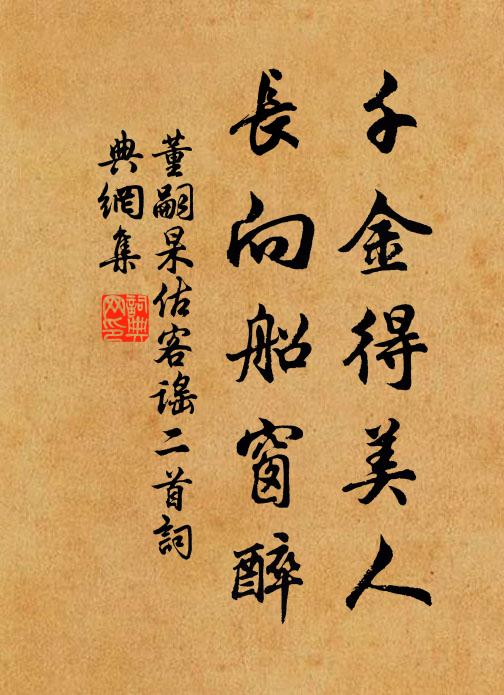 千金得美人
長向船窗醉
董嗣杲估客謠二首詞
典網集
詞典网印